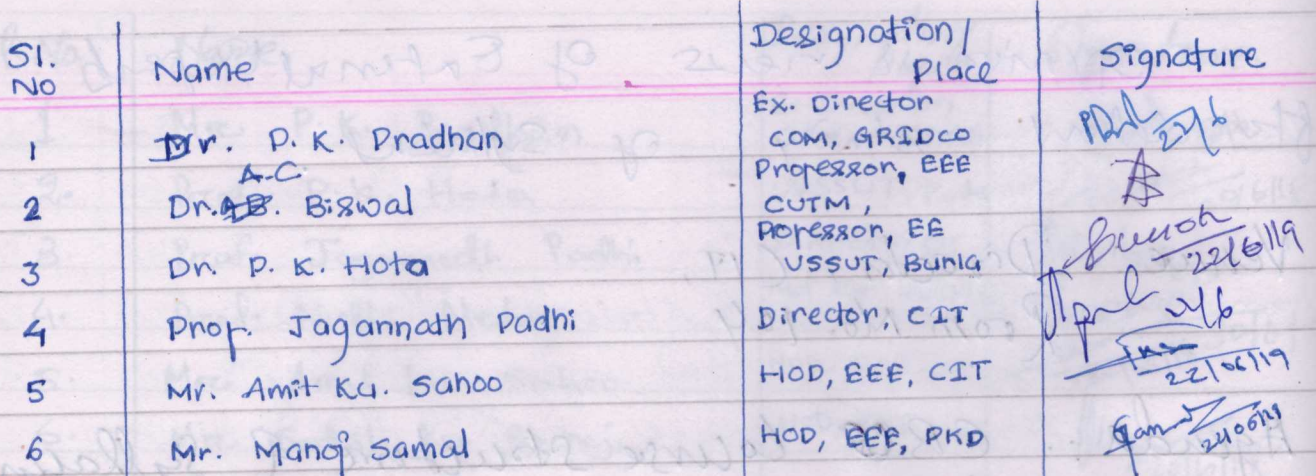 Sl. No Name Designation/ Place Signature
1 Dr. P. K. Pradhan Ex. Director COM, GRIDCO
2 Dr. A.C. Biswal Professor, EEE CUTM,
3 Dr. P. K. Hota Poressor, EE USSUT, Burla 22/6/19
4 Prof. Jagannath Padhi Director, CIT
5 Mr. Amit Ku. Sahoo HOD, EEE, CIT 22/06/19
6 Mr. Manoj Samal HOD, EEE, PKD